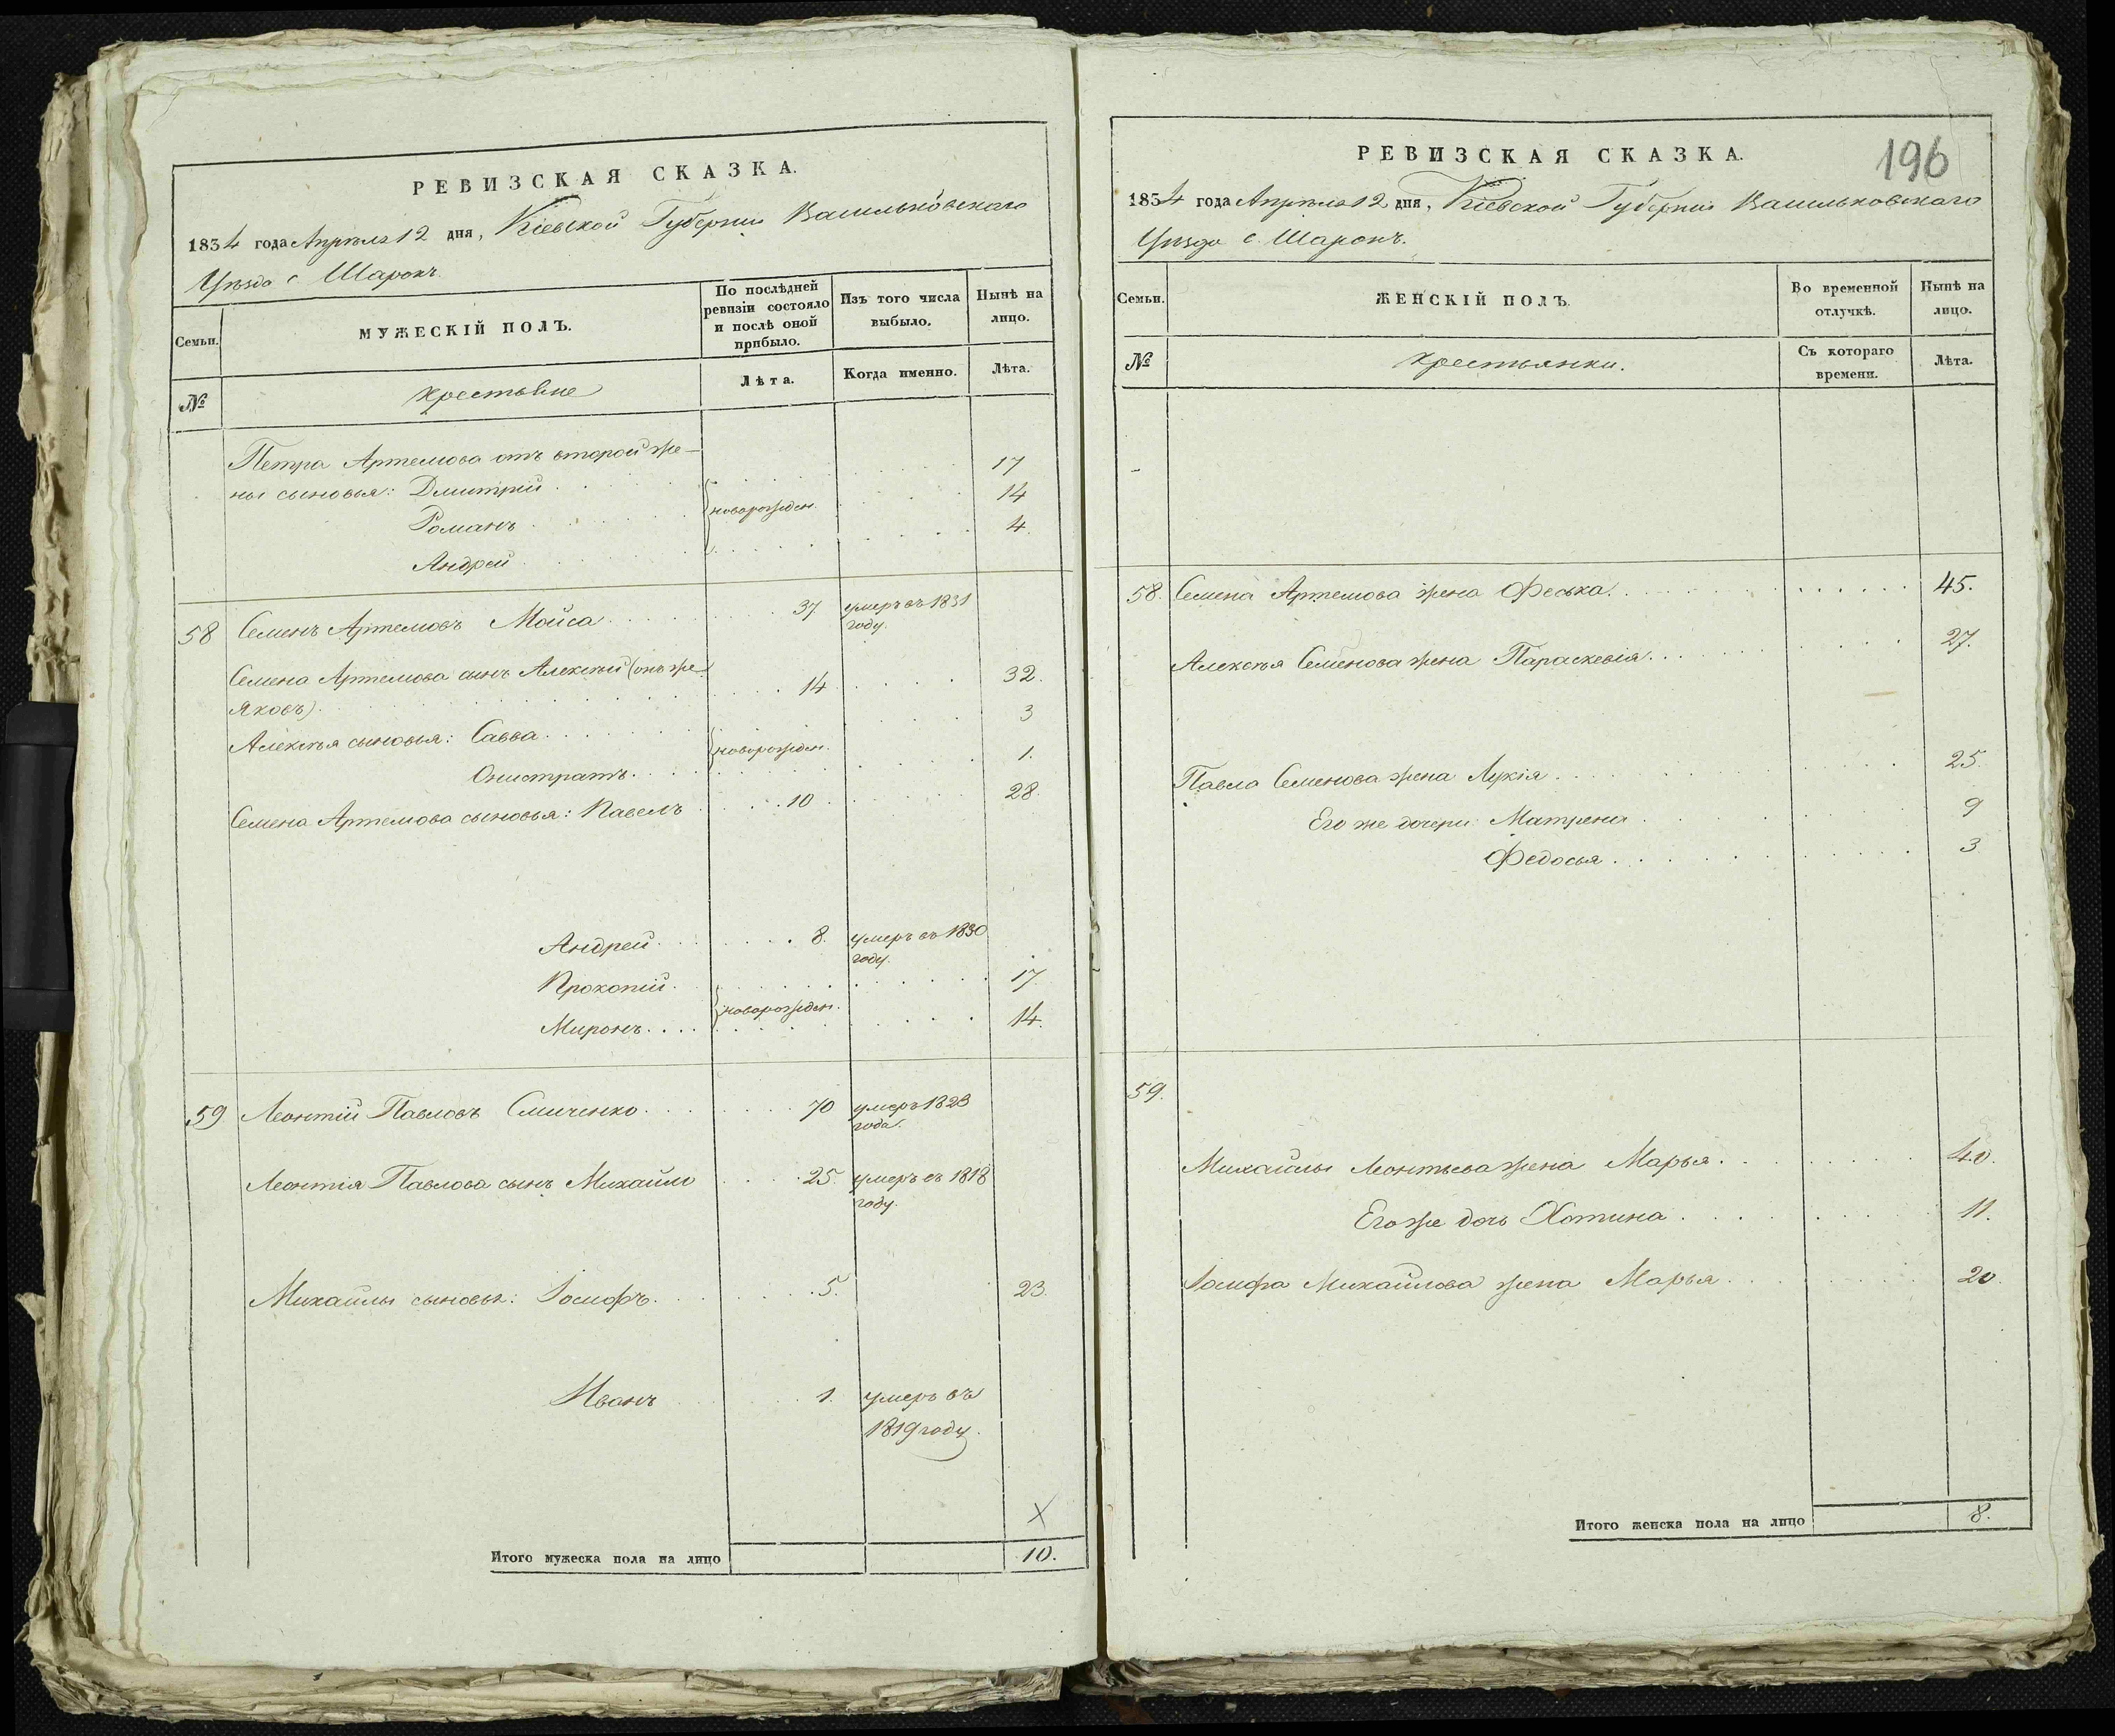 РЕВИЗСКАЯ СКАЗКА.
1834 года Апрѣля 12 дня, Кіевской Губерніи Васильковскаго
Уѣзда с. Шарокъ.
Семьи.
МУЖЕСКІЙ ПОЛЪ.
По послѣдней
ревизіи состояло
и послѣ оной
прибыло.
Изъ того числа
выбыло.
Нынѣ на
лицо.
№
крестьяне
Лѣта.
Когда именно.
Лѣта.
Петра Артемова отъ второй же-
ны сыновья: Дмитрій 17
Романъ новорожден. 14
Андрей 4.
58 Семенъ Артемовъ Мойса 37 умеръ въ 1831
году.
Семена Артемова сынъ Алексѣй (онъ же
Яковъ) 14 32.
Алексѣя сыновья: Савва новорожден. 3
Онистратъ 1.
Семена Артемова сыновья: Павелъ 10 28.
Андрей 8. умеръ въ 1830
году.
Прокопій 17.
новорожден.
Миронъ 14.
59 Леонтій Павловъ Смиченко 70 умеръ 1823
года.
Леонтія Павлова сынъ Михайло 25. умеръ въ 1818
году.
Михайлы сыновья: Іосифъ 5. 23.
Иванъ 1. умеръ въ
1819 году.
X
Итого мужеска пола на лицо 10.
196
РЕВИЗСКАЯ СКАЗКА.
1834 года Апрѣля 12 дня, Кіевской Губерніи Васильковскаго
Уѣзда с. Шарокъ.
Семьи.
ЖЕНСКІЙ ПОЛЪ.
Во временной
отлучкѣ.
Нынѣ на
лицо.
№
крестьянки.
Съ котораго
времени.
Лѣта.
58. Семена Артемова жена Феська 45.
Алексѣя Семенова жена Параскевія 27.
Павла Семенова жена Лукія 25.
Его же дочери: Матрена 9
Федосья 3
59.
Михайлы Леонтьева жена Марья 40.
Его же дочь Хотина 11.
Іосифа Михайлова жена Марья 20.
Итого женска пола на лицо 8.